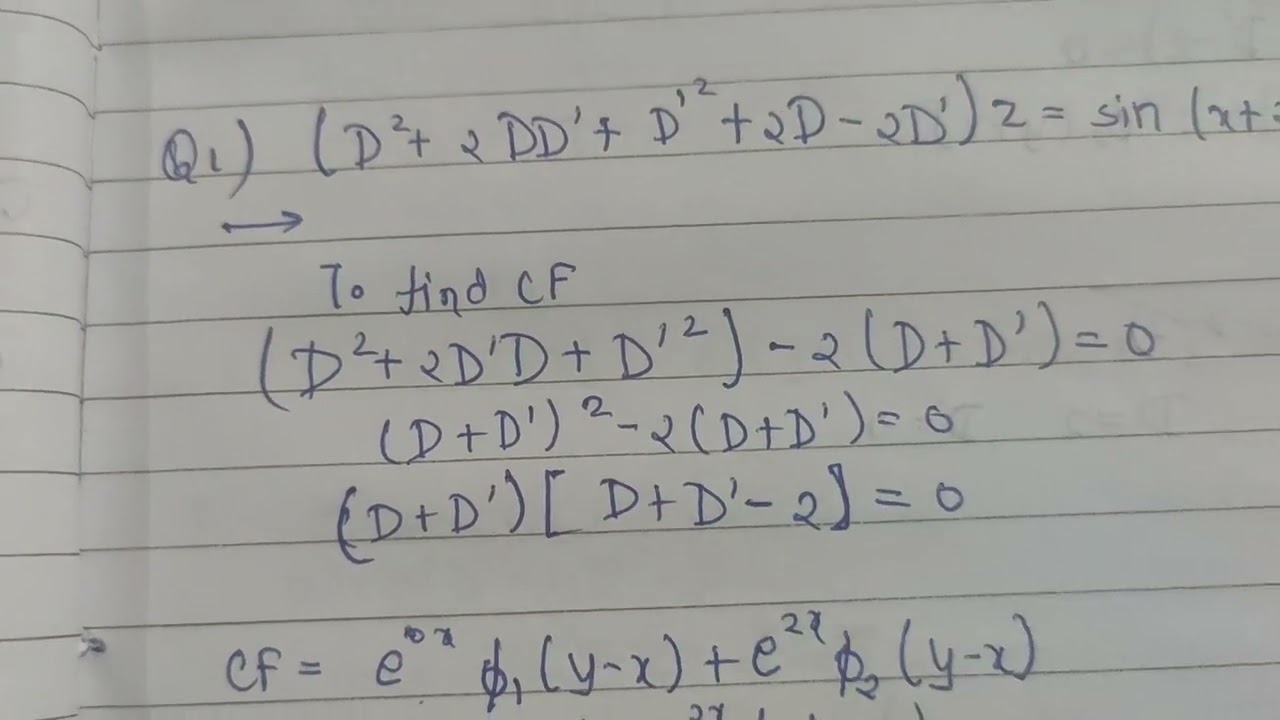 Q1) (D²+ 2DD'+ D'²+2D-2D')z = sin (x+
To find CF
(D²+2D'D+D'²)-2(D+D')=0
(D+D')²-2(D+D')=0
(D+D')[ D+D'-2]=0
CF = e^{0x} ϕ₁(y-x)+e^{2x}ϕ₂(y-x)